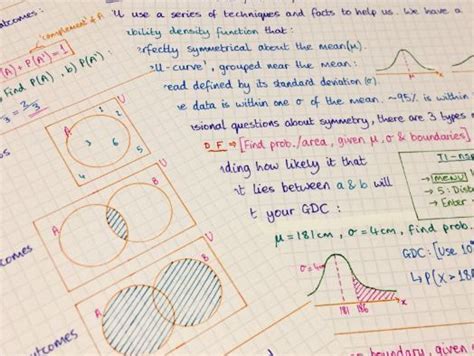 "complement of A"
(A) + P(A') = 1
Find P(A), b) P(A')
outcomes
U
A
3 6
1
5
2
4
U
A
B
U
A
B
outcomes
ll use a series of techniques and facts to help us. We have a
bility density function that:
erfectly symmetrical about the mean (μ).
ell-curve', grouped near the mean:
read defined by its standard deviation (σ).
e data is within one σ of the mean. ~95% is within
sional questions about symmetry, there are 3 types
D F ⇒ [Find prob./area, given μ, σ & boundaries]
ding how likely it that
t lies between a & b will
t your GDC:
μ = 181cm, σ = 4cm, find prob.
σ = 4cm
181 186 x
TI-ns
→ MENU
→ 5: Dist
→ Enter
GDC: [Use 10
↳ P(X > 18
boundary, given